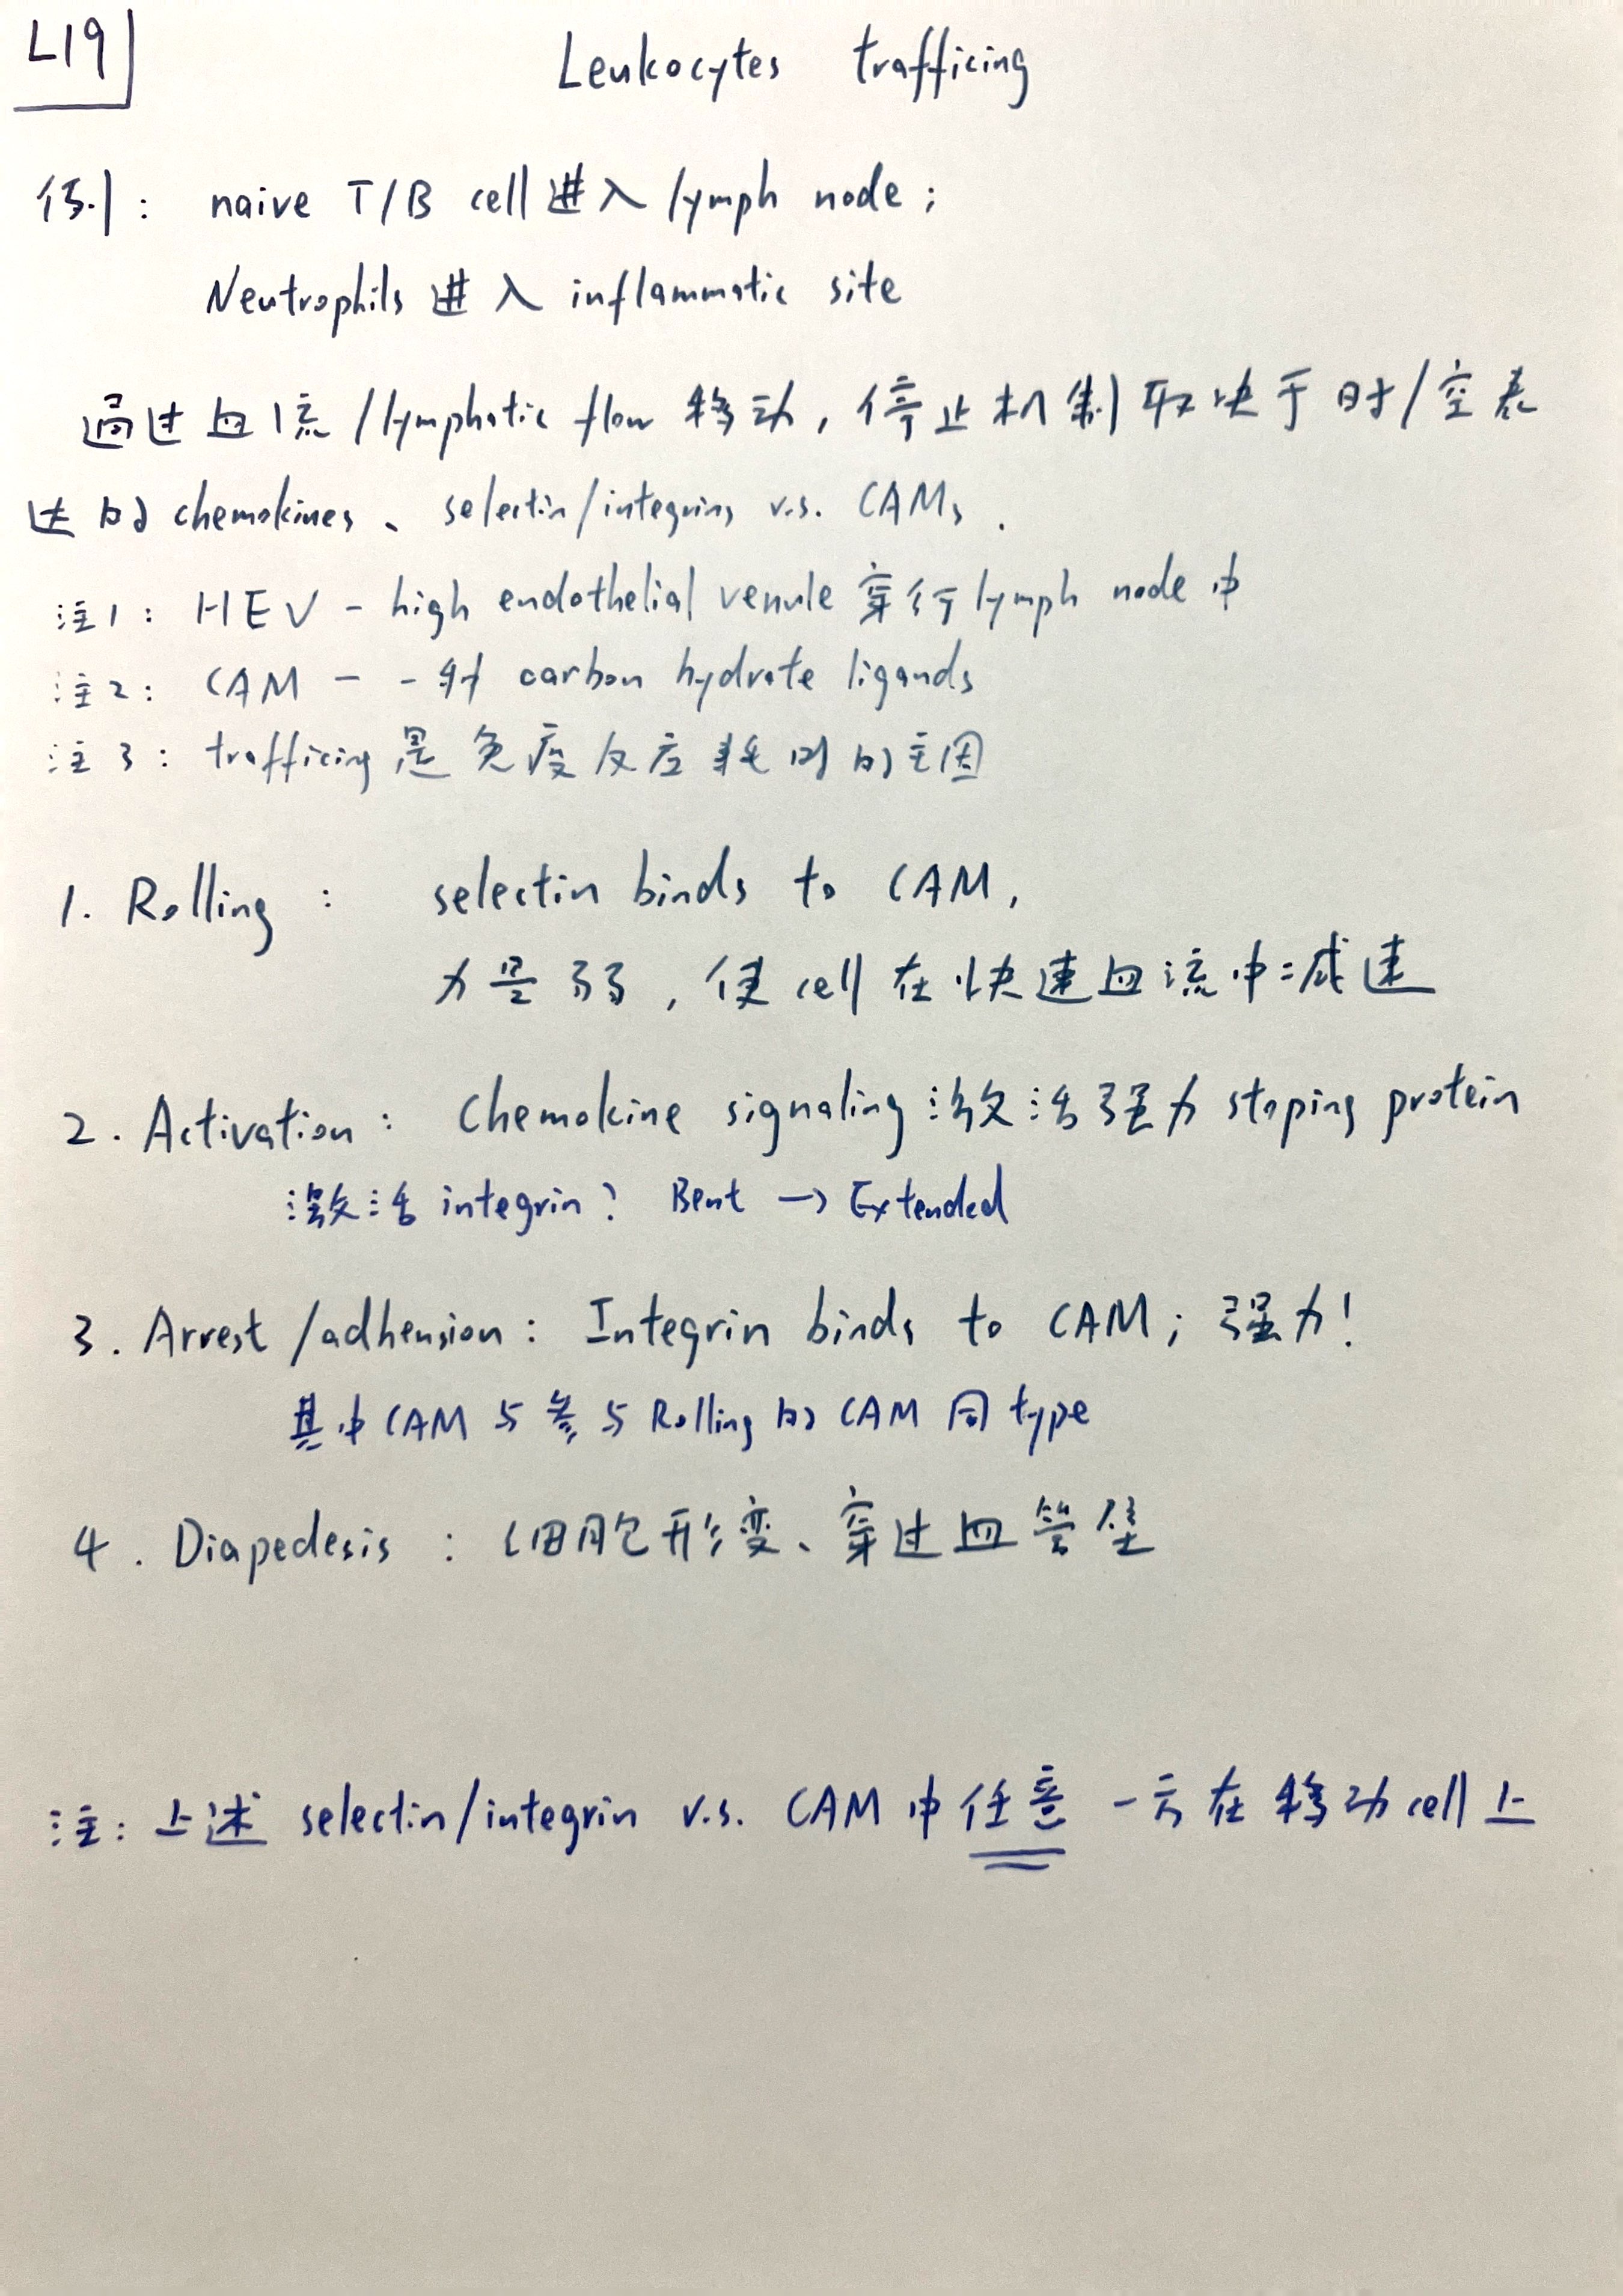 L19
Leukocytes trafficing
例: naive T/B cell 进入 lymph node;
Neutrophils 进入 inflammatic site
通过血流/lymphatic flow 移动, 停止机制取决于时/空表
达的 chemokines、selectin/integrins v.s. CAMs.
注1: HEV - high endothelial venule 穿行 lymph node 中
注2: CAM - 一种 carbon hydrate ligands
注3: trafficing 是免疫反应耗时的主因
1. Rolling: selectin binds to CAM,
力量弱, 使 cell 在快速血流中减速
2. Activation: Chemokine signaling 激活强力 stoping protein
激活 integrin? Bent → Extended
3. Arrest/adhension: Integrin binds to CAM; 强力!
其中 CAM 与参与 Rolling 的 CAM 同 type
4. Diapedesis: 细胞形变、穿过血管壁
注: 上述 selectin/integrin v.s. CAM 中任意一方在移动 cell 上